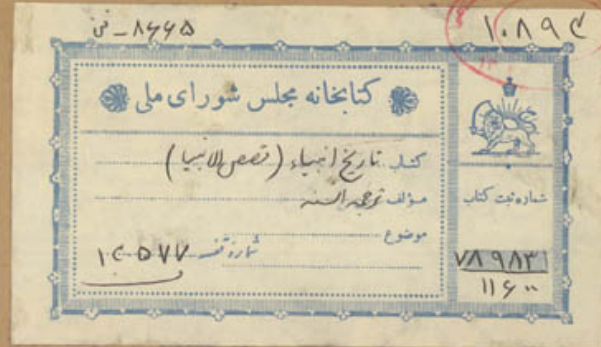 ۸۶۶۵ - فی
۱۰۸۹۴
کتابخانه مجلس شورای ملی
کتاب تاریخ انبیاء (قصص الانبیا)
مؤلف
موضوع
شماره قفسه ۱۴۵۷۷
شماره ثبت کتاب
۷۸۹۸۳
۱۱۶۰۰